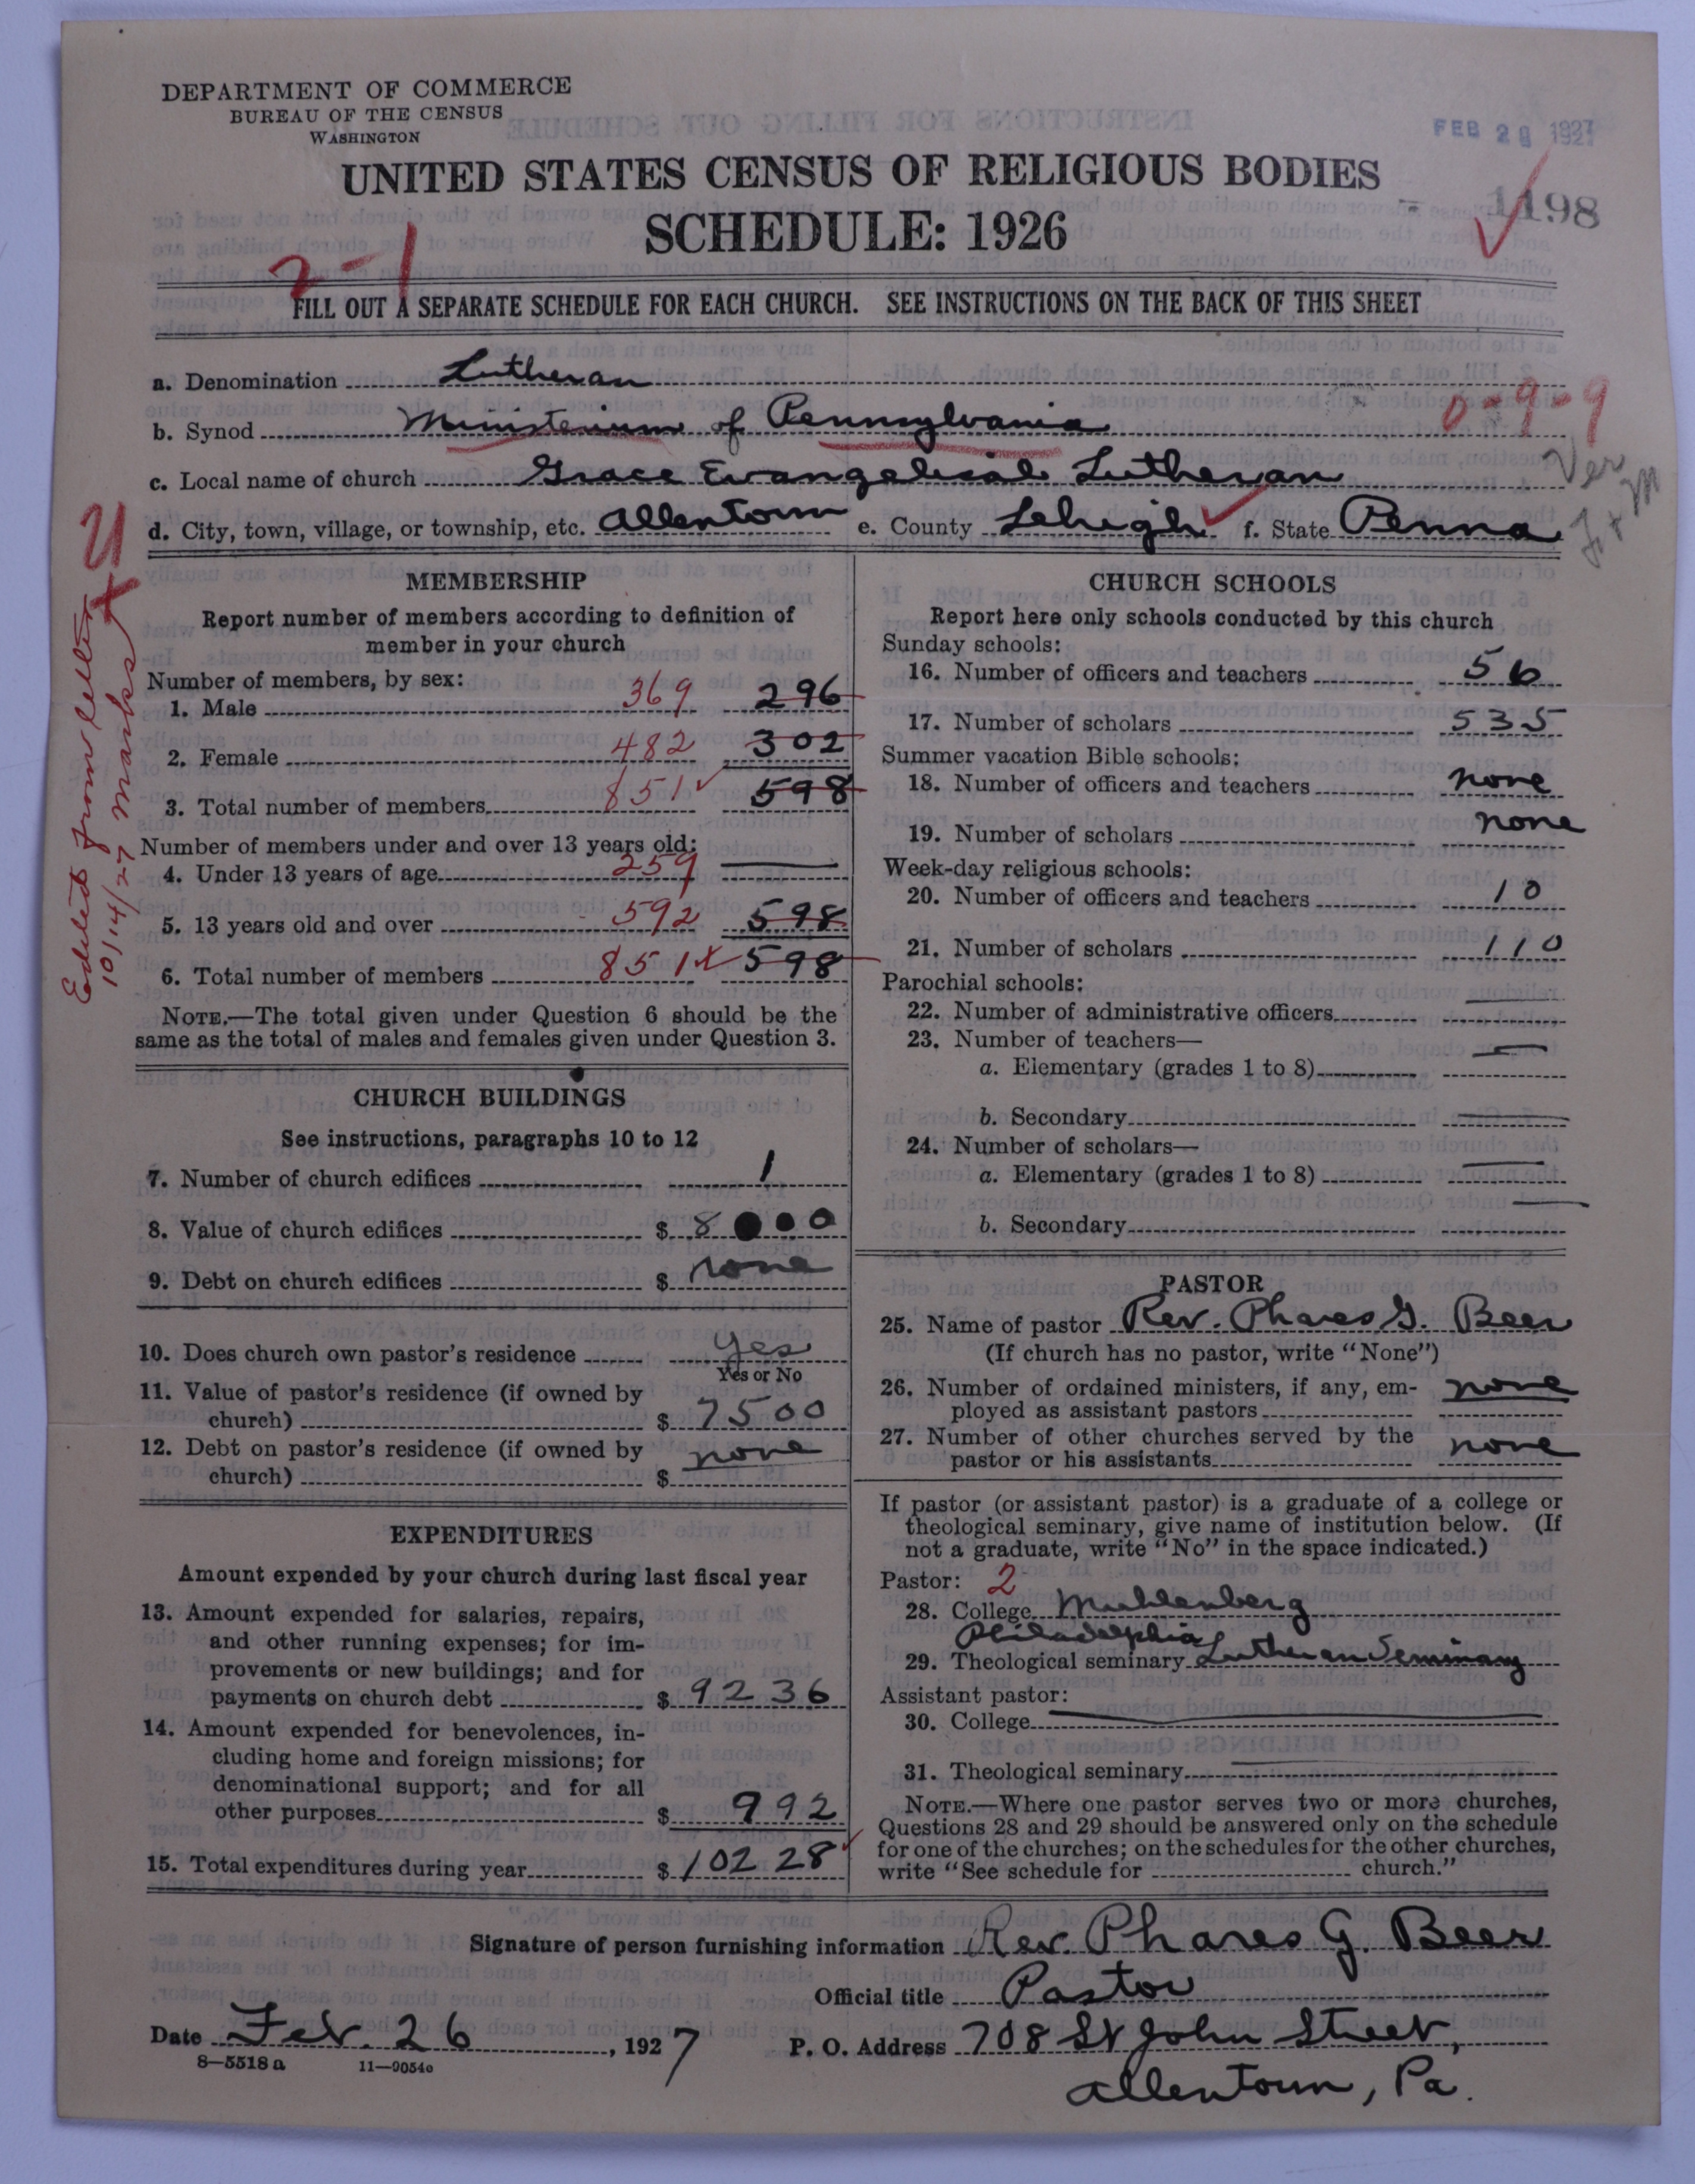 DEPARTMENT OF COMMERCE
BUREAU OF THE CENSUS
WASHINGTON
FEB 28 1927
UNITED STATES CENSUS OF RELIGIOUS BODIES
SCHEDULE: 1926
1198
2-1
FILL OUT A SEPARATE SCHEDULE FOR EACH CHURCH. SEE INSTRUCTIONS ON THE BACK OF THIS SHEET
a. Denomination Lutheran
b. Synod Ministerium of Pennsylvania 0-9-9
c. Local name of church Grace Evangelical Lutheran Ver
d. City, town, village, or township, etc. Allentown e. County Lehigh f. State Penna
Edited from letter
10/14/27 Marks
MEMBERSHIP
Report number of members according to definition of
member in your church
Number of members, by sex:
1. Male 369 296
2. Female 482 302
3. Total number of members 851 598
Number of members under and over 13 years old:
4. Under 13 years of age 259
5. 13 years old and over 592 598
6. Total number of members 851 598
NOTE.—The total given under Question 6 should be the
same as the total of males and females given under Question 3.
CHURCH BUILDINGS
See instructions, paragraphs 10 to 12
7. Number of church edifices 1
8. Value of church edifices $ 8
9. Debt on church edifices $ none
10. Does church own pastor's residence yes
Yes or No
11. Value of pastor's residence (if owned by
church) $ 7500
12. Debt on pastor's residence (if owned by
church) $ none
EXPENDITURES
Amount expended by your church during last fiscal year
13. Amount expended for salaries, repairs,
and other running expenses; for im-
provements or new buildings; and for
payments on church debt $ 9236
14. Amount expended for benevolences, in-
cluding home and foreign missions; for
denominational support; and for all
other purposes $ 992
15. Total expenditures during year $ 10228
CHURCH SCHOOLS
Report here only schools conducted by this church
Sunday schools:
16. Number of officers and teachers 56
17. Number of scholars 535
Summer vacation Bible schools:
18. Number of officers and teachers none
19. Number of scholars none
Week-day religious schools:
20. Number of officers and teachers 10
21. Number of scholars 110
Parochial schools:
22. Number of administrative officers
23. Number of teachers—
a. Elementary (grades 1 to 8)
b. Secondary
24. Number of scholars—
a. Elementary (grades 1 to 8)
b. Secondary
PASTOR
25. Name of pastor Rev. Phares G. Beer
(If church has no pastor, write "None")
26. Number of ordained ministers, if any, em-
ployed as assistant pastors none
27. Number of other churches served by the
pastor or his assistants none
If pastor (or assistant pastor) is a graduate of a college or
theological seminary, give name of institution below. (If
not a graduate, write "No" in the space indicated.)
Pastor: 2
28. College Muhlenberg
Philadelphia
29. Theological seminary Lutheran Seminary
Assistant pastor:
30. College
31. Theological seminary
NOTE.—Where one pastor serves two or more churches,
Questions 28 and 29 should be answered only on the schedule
for one of the churches; on the schedules for the other churches,
write "See schedule for church."
Signature of person furnishing information Rev. Phares G. Beer
Official title Pastor
Date Feb. 26, 1927 P. O. Address 708 St John Street,
8—5518 a 11—9054o
Allentown, Pa.